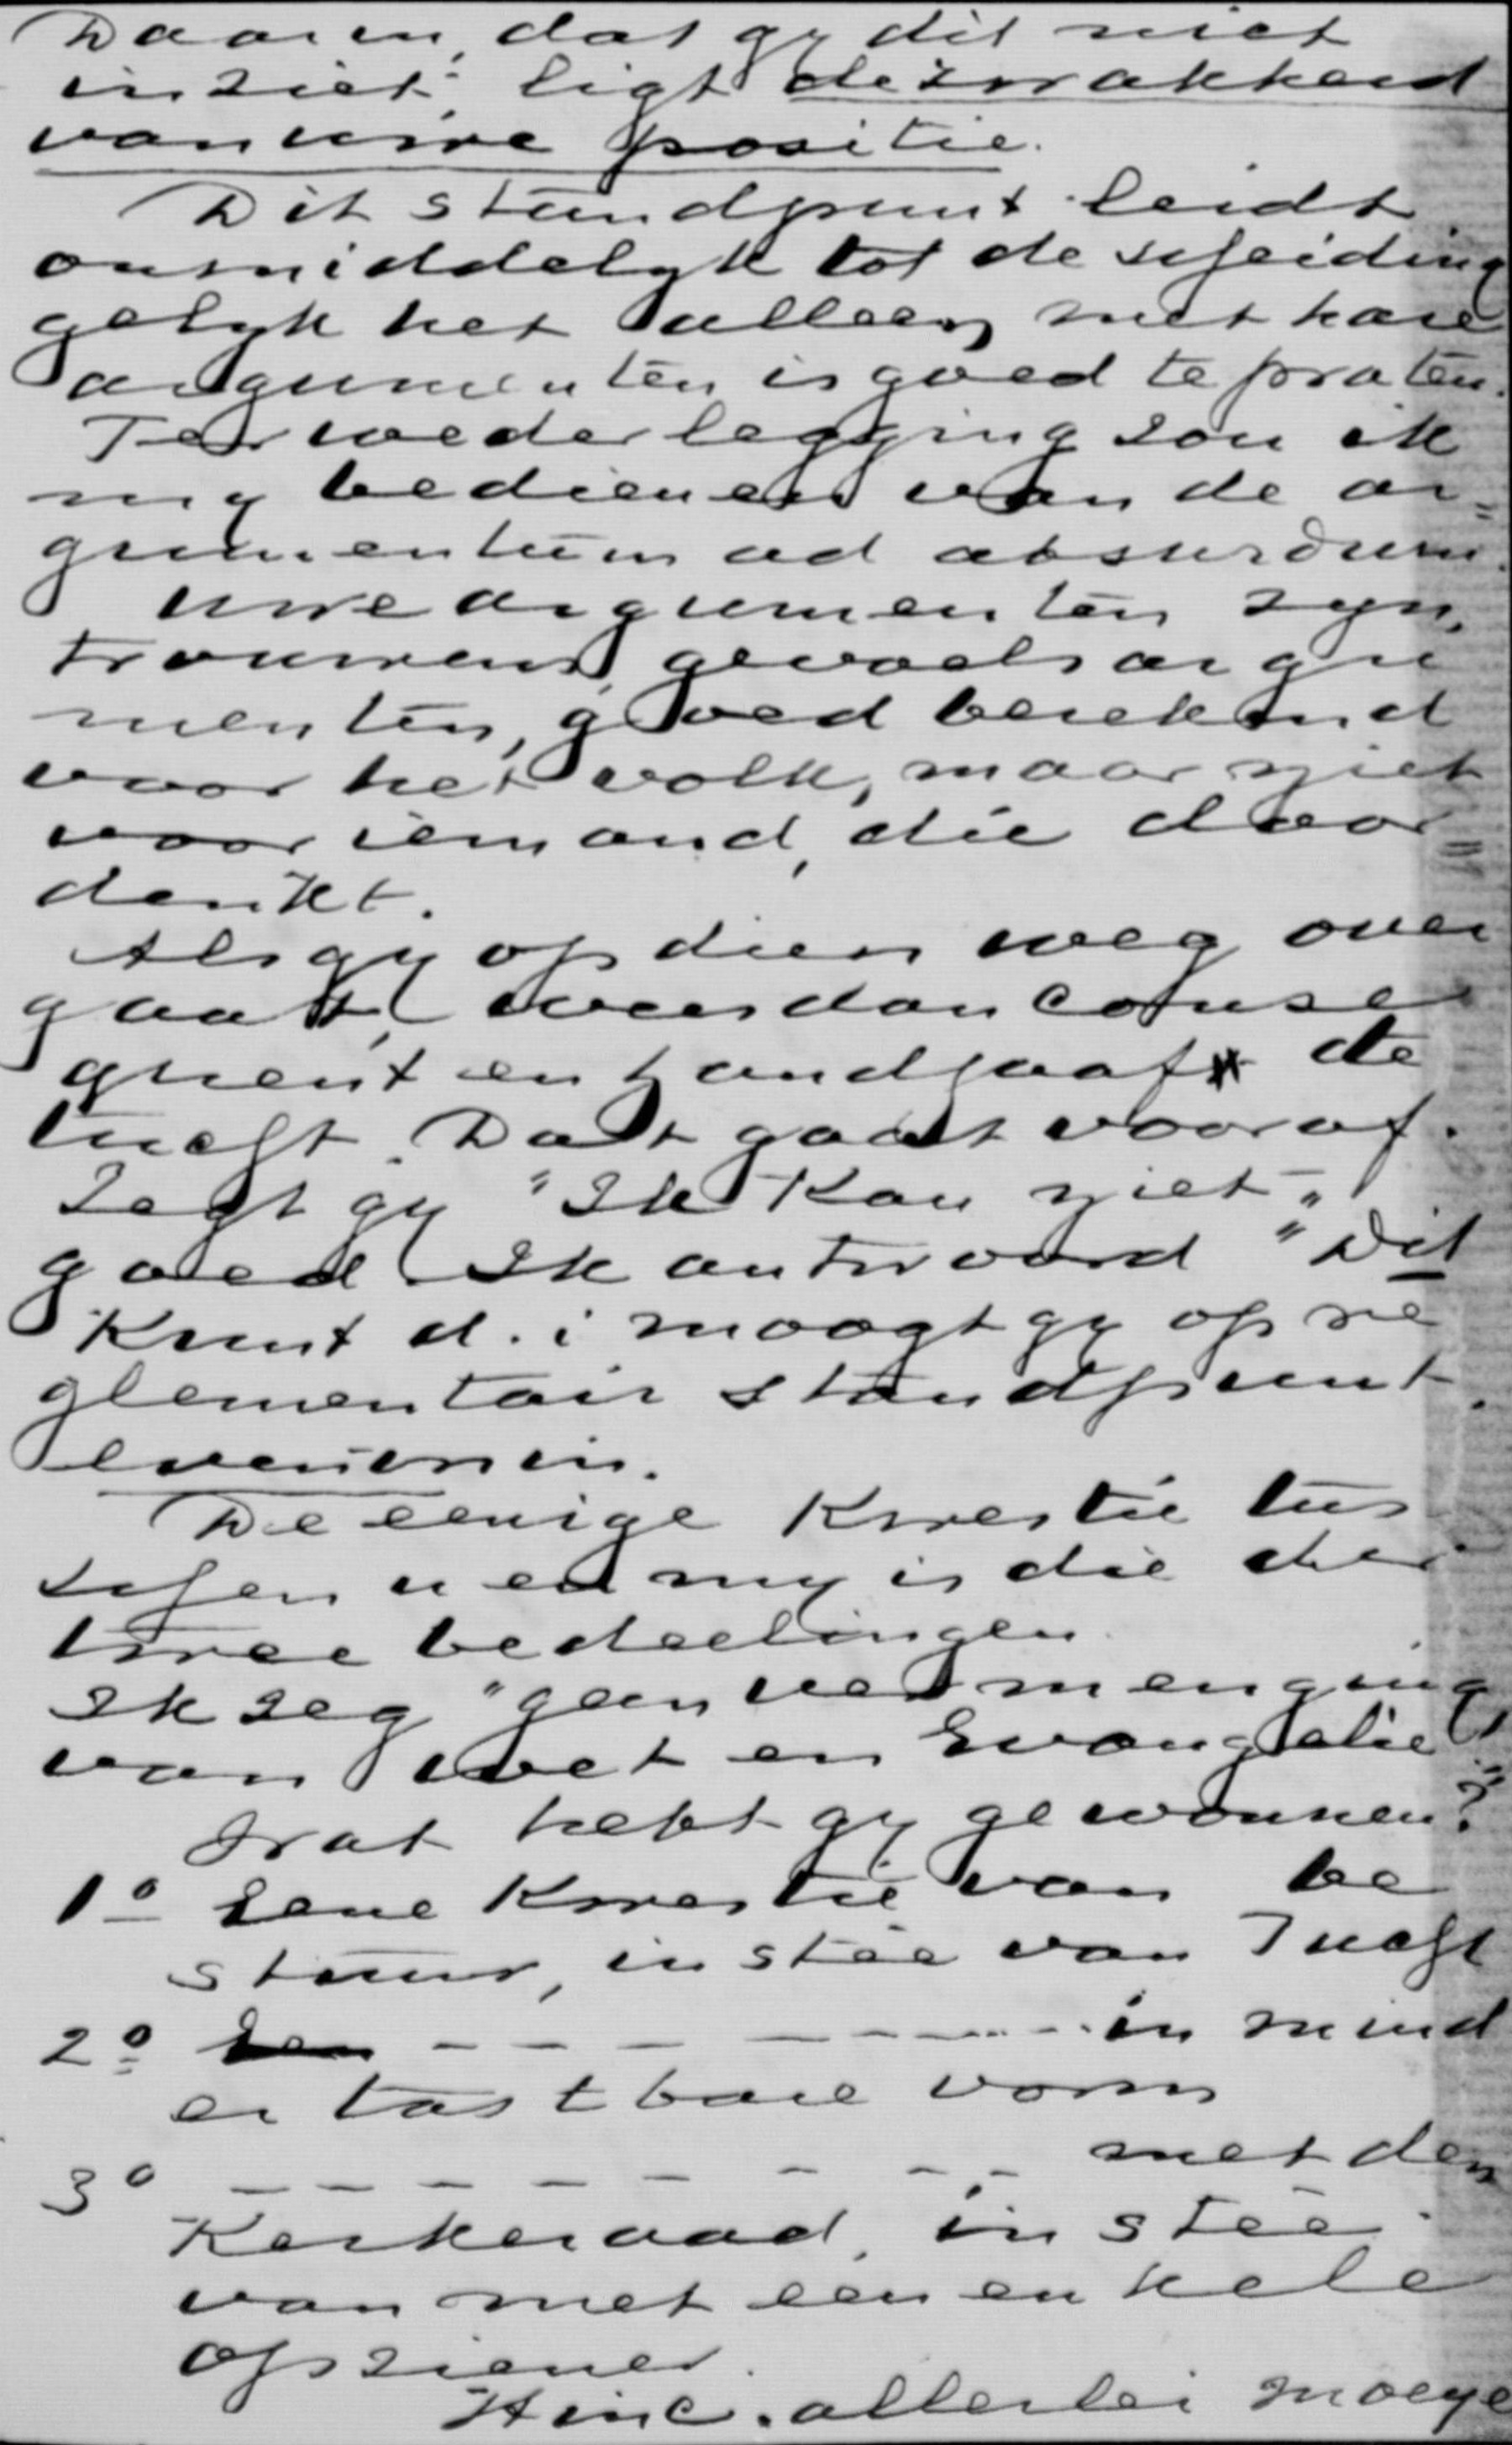 Daarin, dat gy dit niet
inziet, ligt de zwakheid
van uwe positie.
Dit standpunt leidt
onmiddelyk tot de scheiding
gelyk het alleen met hare
argumenten is goed te praten.
Ter wederlegging zou ik
my bedienen van de ar=
gumentum ad absurdum.
Uwe argumenten zyn,
trouwens, gevoelsargu
menten, goed berekend
voor het volk, maar niet
voor iemand, die door=
denkt.
Als gy op dien weg over
gaat, wees dan conse
quent en handhaaf de
tucht. Dat gaat vooraf.
Zegt gy "Ik kan niet",
goed. Ik antwoord "Dit
kunt d. i moogt gy op re
glementair standpunt
evenmin.
De eenige kwestie tus
schen u en my is die der
twee bedeelingen.
Ik zeg "geen vermenging
van wet en Evangelie",
Wat hebt gy gewonnen?
1º Eene kwestie van be
stuur, in stee van Tucht
2º Een - - - - - - - in mind
er tastbare vorm
3º - - - - - - - met den
Kerkeraad, in stee
van met een enkele
opziener.
Hinc. allerlei moeye